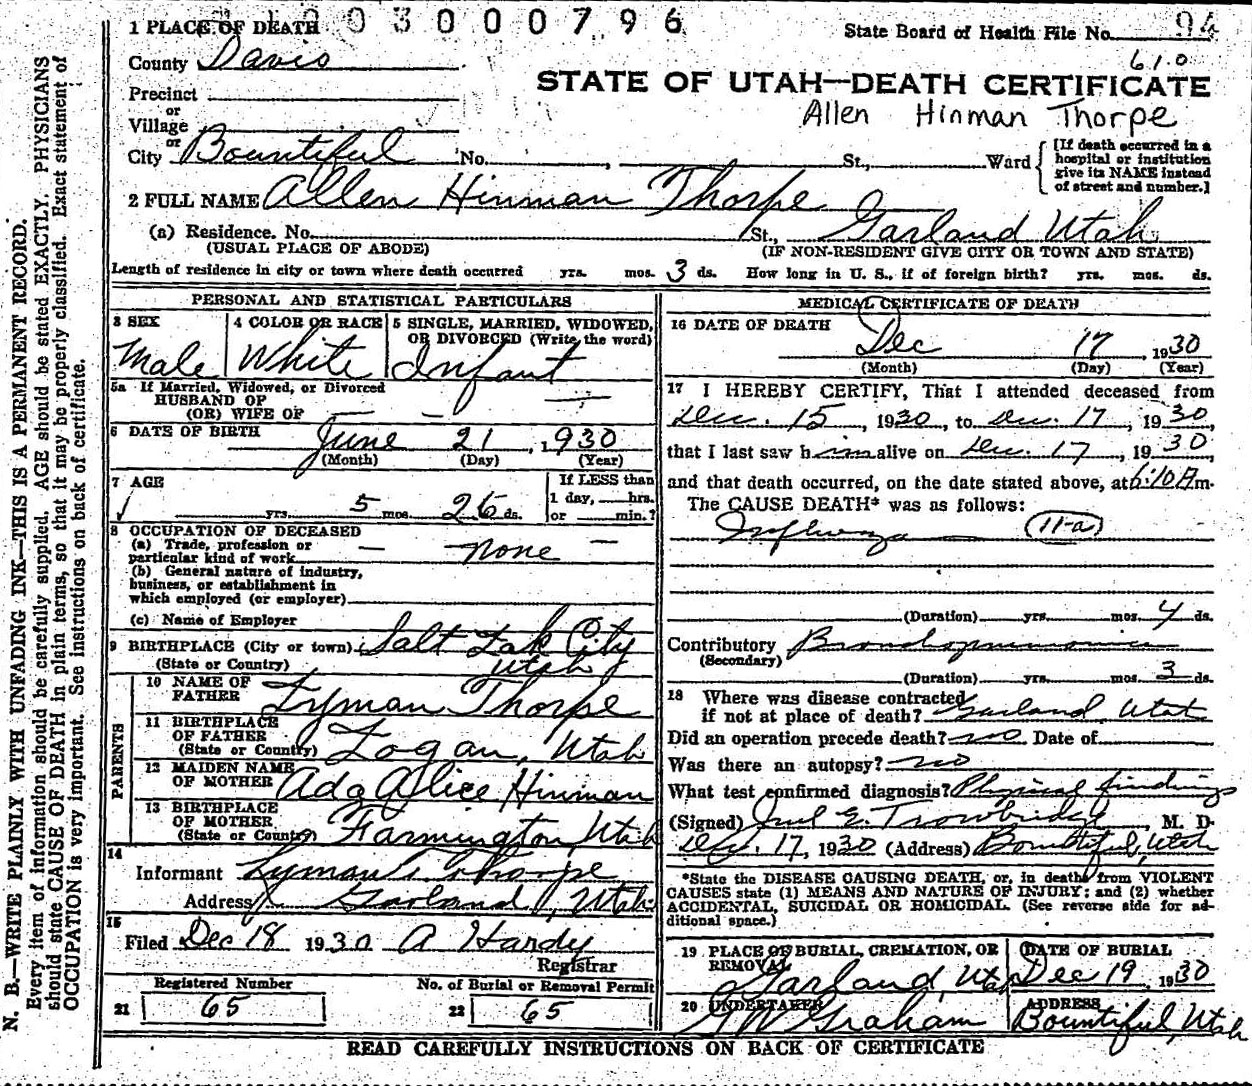 003000796
1 PLACE OF DEATH
State Board of Health File No. 94
County Davis
610
STATE OF UTAH—DEATH CERTIFICATE
Precinct
or
Village
Allen Hinman Thorpe
or
City Bountiful No. , St., Ward
[If death occurred in a
hospital or institution
give its NAME instead
of street and number.]
2 FULL NAME Allen Hinman Thorpe
(a) Residence. No. St., Garland Utah
(USUAL PLACE OF ABODE) (IF NON-RESIDENT GIVE CITY OR TOWN AND STATE)
Length of residence in city or town where death occurred yrs. mos. 3 ds. How long in U. S., if of foreign birth? yrs. mos. ds.
PERSONAL AND STATISTICAL PARTICULARS
3 SEX
Male
4 COLOR OR RACE
White
5 SINGLE, MARRIED, WIDOWED,
OR DIVORCED (Write the word)
Infant
5a If Married, Widowed, or Divorced
HUSBAND OF
(OR) WIFE OF
6 DATE OF BIRTH June 21, 1930
(Month) (Day) (Year)
7 AGE
yrs. 5 mos. 26 ds.
If LESS than
1 day, hrs.
or min.?
8 OCCUPATION OF DECEASED
(a) Trade, profession or
particular kind of work — none —
(b) General nature of industry,
business, or establishment in
which employed (or employer)
(c) Name of Employer
9 BIRTHPLACE (City or town) Salt Lake City
(State or Country) Utah
PARENTS
10 NAME OF
FATHER Lyman Thorpe
11 BIRTHPLACE
OF FATHER
(State or Country) Logan, Utah
12 MAIDEN NAME
OF MOTHER Ada Alice Hinman
13 BIRTHPLACE
OF MOTHER
(State or Country) Farmington, Utah
14
Informant Lyman Thorpe
Address Garland, Utah
15
Filed Dec 18 1930 A Hardy
Registrar
Registered Number No. of Burial or Removal Permit
21 65 22 65
MEDICAL CERTIFICATE OF DEATH
16 DATE OF DEATH
Dec 17, 1930
(Month) (Day) (Year)
17 I HEREBY CERTIFY, That I attended deceased from
Dec. 15, 1930, to Dec. 17, 1930,
that I last saw him alive on Dec. 17, 1930,
and that death occurred, on the date stated above, at 6:10 A m.
The CAUSE DEATH* was as follows:
Influenza (11-a)
(Duration) yrs. mos. 4 ds.
Contributory Bronchopneumonia
(Secondary)
(Duration) yrs. mos. 3 ds.
18 Where was disease contracted
if not at place of death? Garland, Utah
Did an operation precede death? no Date of
Was there an autopsy? no
What test confirmed diagnosis? Physical findings
(Signed) E. Trowbridge, M. D.
Dec. 17, 1930 (Address) Bountiful, Utah
*State the DISEASE CAUSING DEATH, or, in deaths from VIOLENT
CAUSES state (1) MEANS AND NATURE OF INJURY; and (2) whether
ACCIDENTAL, SUICIDAL OR HOMICIDAL. (See reverse side for ad-
ditional space.)
19 PLACE OF BURIAL, CREMATION, OR
REMOVAL
Garland, Utah
DATE OF BURIAL
Dec 19, 1930
20 UNDERTAKER
Graham
ADDRESS
Bountiful, Utah
READ CAREFULLY INSTRUCTIONS ON BACK OF CERTIFICATE
N. B.—WRITE PLAINLY WITH UNFADING INK—THIS IS A PERMANENT RECORD.
Every item of information should be carefully supplied. AGE should be stated EXACTLY. PHYSICIANS
should state CAUSE OF DEATH in plain terms, so that it may be properly classified. Exact statement of
OCCUPATION is very important. See instructions on back of certificate.